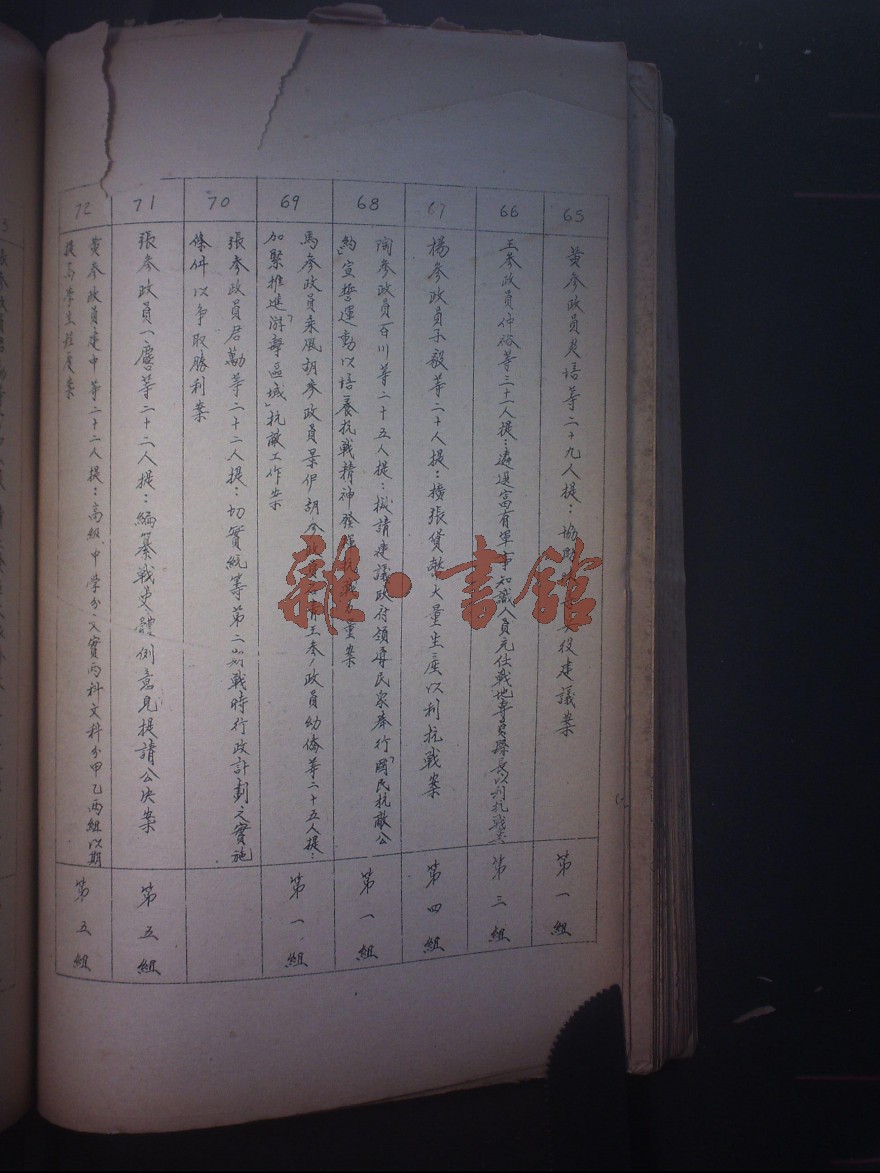 65
黃參政員炎培等二十九人提：協助
役建議案
第一組
66
王參政員仲裕等三十一人提：遴選富有軍事知識人員充任戰地專員縣長以利抗戰案
第三組
67
楊參政員子毅等二十人提：擴張貸款大量生產以利抗戰案
第四組
68
陶參政員百川等二十五人提：擬請建議政府領導民眾舉行「國民抗敵公
約」宣誓運動以培養抗戰精神發揮抗戰
重案
第一組
69
馬參政員乘風胡參政員景伊胡參政員
王參政員幼僑等二十五人提：
加緊推進「游擊區域」抗敵工作案
第一組
70
張參政員君勱等二十二人提：切實統籌第二期戰時行政計劃之實施
條件以爭取勝利案
71
張參政員一麐等二十二人提：編纂戰史體例意見提請公決案
第五組
72
黃參政員建中等二十二人提：高級中學分文實兩科文科分甲乙兩組以期
提高學生程度案
第五組
雜·書館